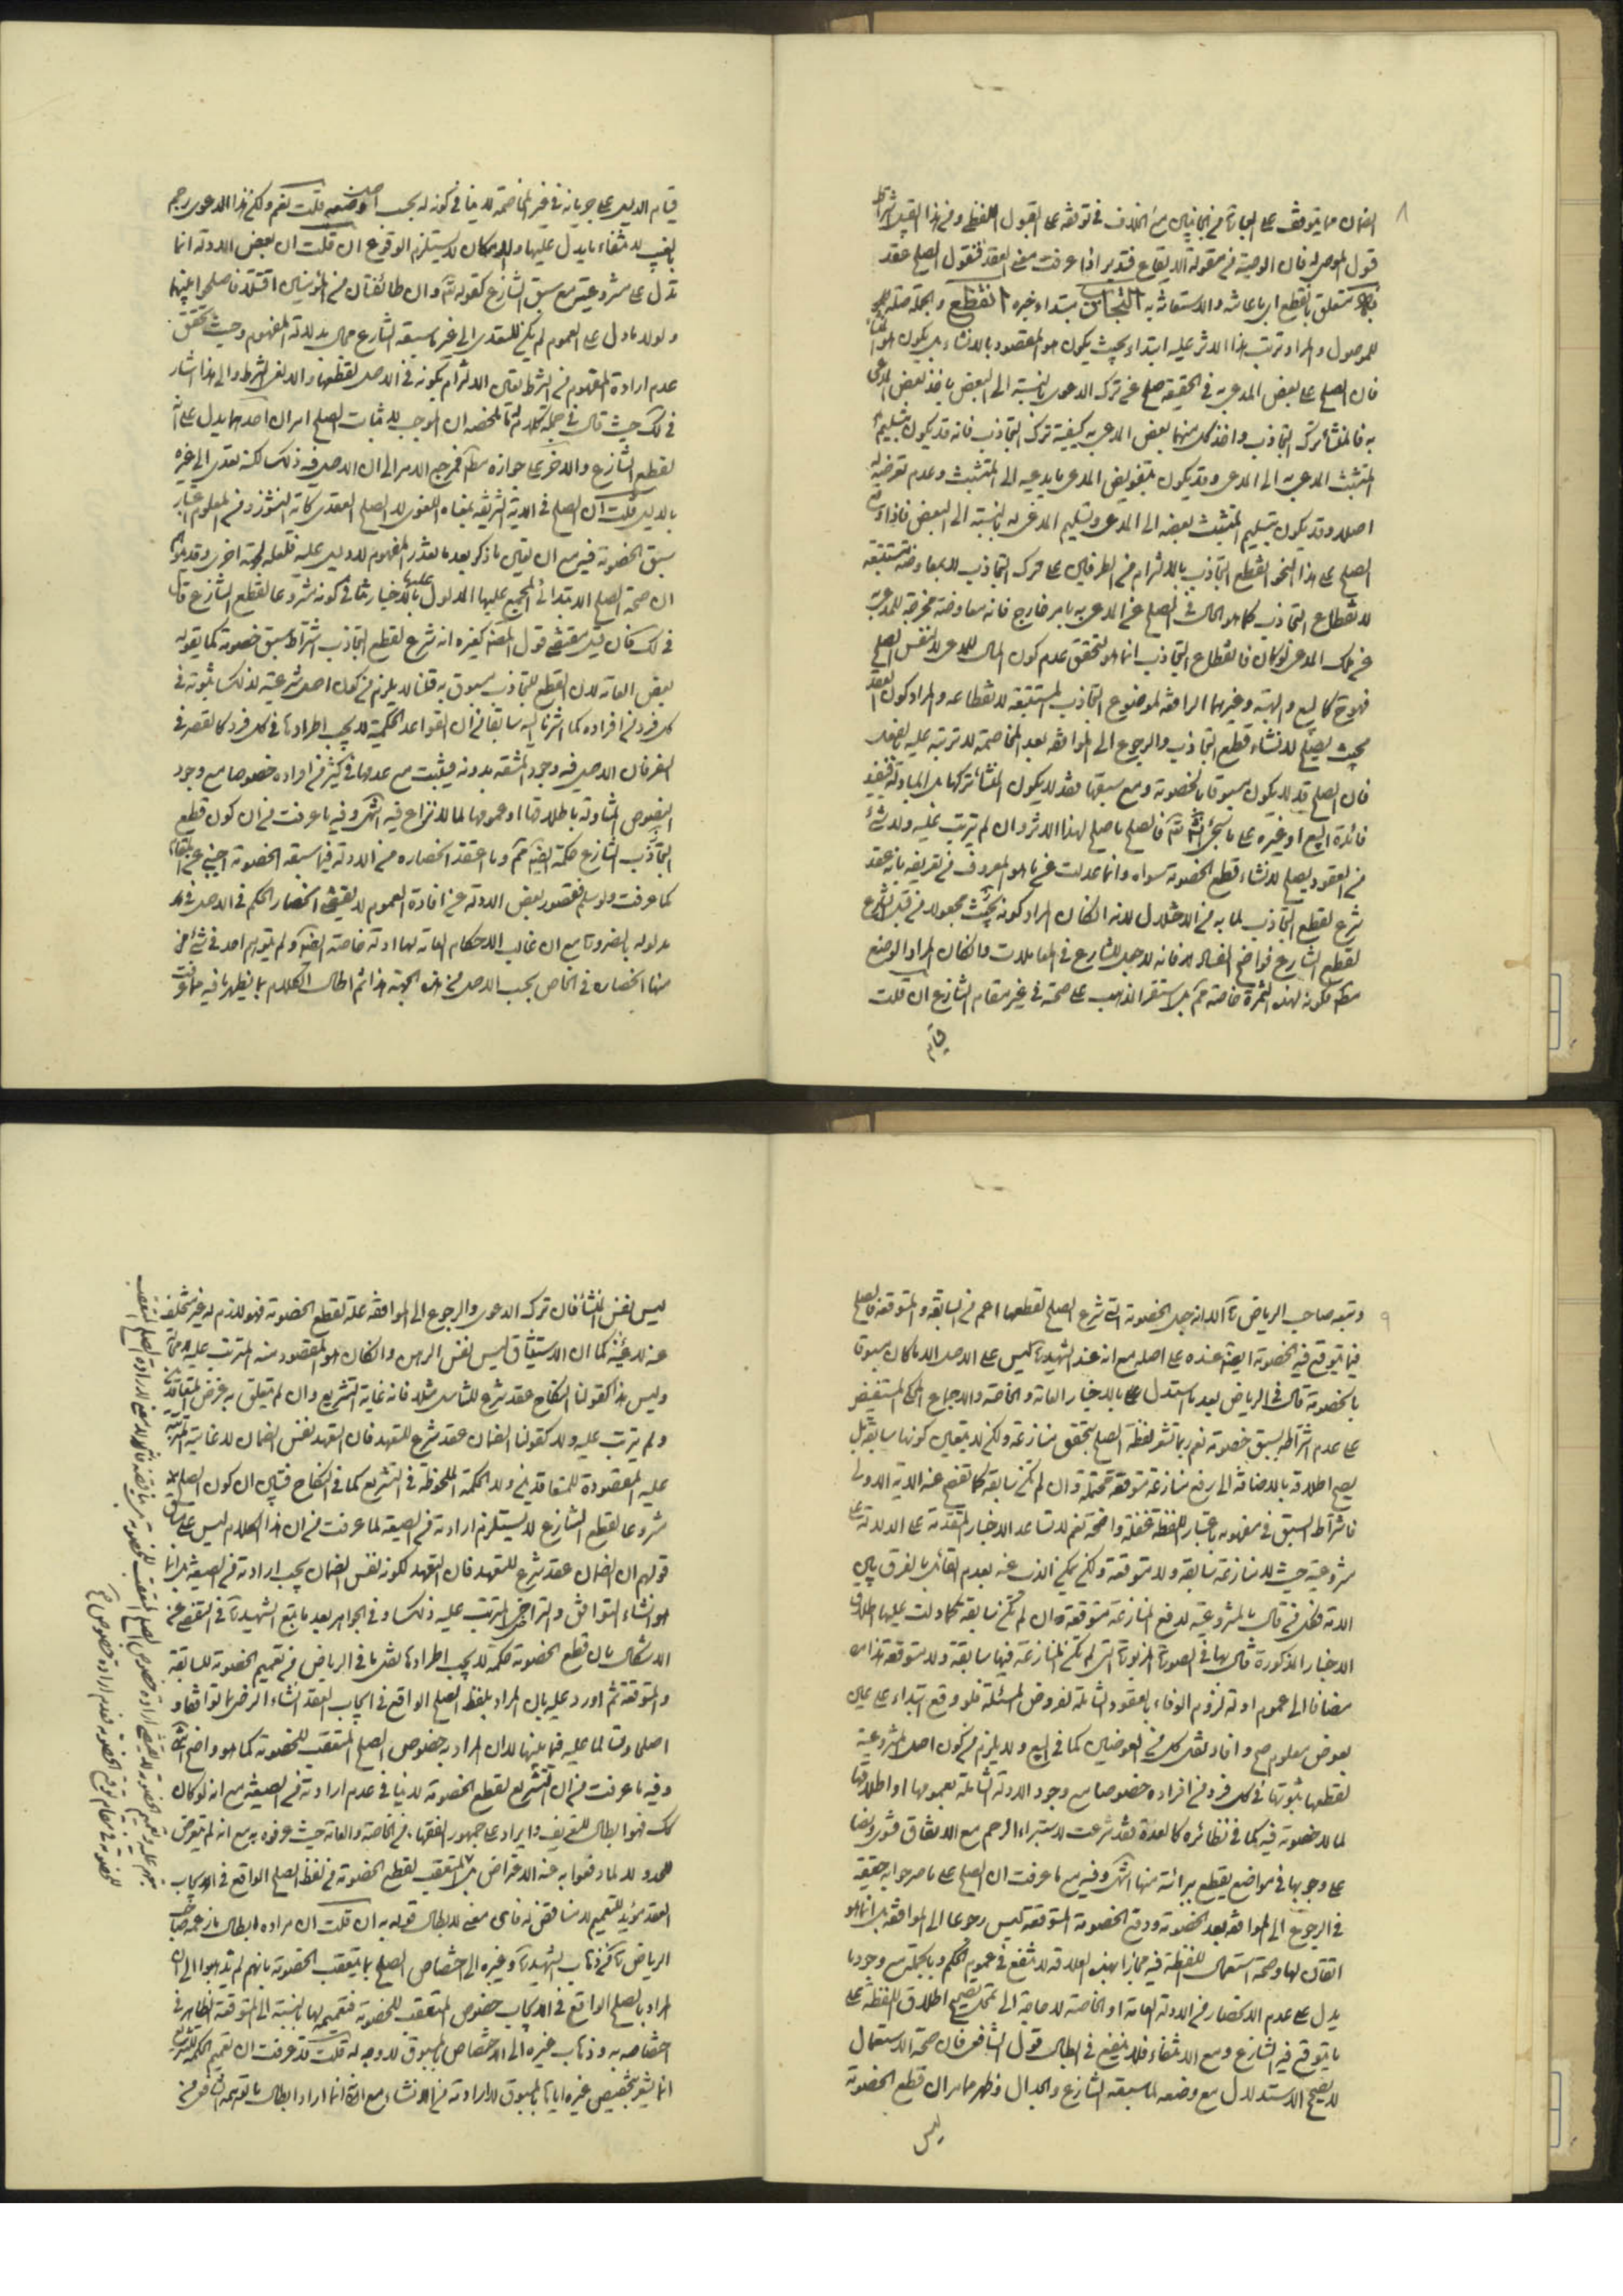 ٨
الضمان مما يتوقف على
قول الموصى له فان الوصية من مقولة الايقاع فتدبر اذا عرفت معنى العقد فنقول الصلح عقد
متعلق بالقطع
للموصول والمراد ترتب هذا الاثر عليه ابتداء بحيث يكون هو المقصود بالانشاء
فان الصلح على بعض المدعى به في الحقيقة صلح عن ترك الدعوى بالنسبة الى البعض باخذ بعض المدعى
به فالمنشأ ترك التجاذب واخذ كل منهما بعض المدعى به كيفية ترك التجاذب فانه قد يكون بتسليم
المتشبث المدعى به الى المدعي وقد يكون بتفويض المدعي ما يدعيه الى المتشبث وعدم تعرضه له
اصلا وقد يكون بتسليم المتشبث بعضه الى المدعي وتسليم المدعي له بالنسبة الى البعض
الصلح على هذا النحو القطع التجاذب بالالتزام من الطرفين على ترك التجاذب لا بمعاوضة مستتبعة
لانقطاع التجاذب كما هو الحال في الصلح عن المدعى به بامر خارج فانه معاوضة مخرجة للمدعى به
عن ملك المدعي لو كان فانقطاع التجاذب انما هو لتحقق عدم كون المال للمدعي لا لنفس الصلح
فهو ح كالبيع والهبة وغيرهما الرافعة لموضوع التجاذب المستتبعة لانقطاعه والمراد كون العقد
بحيث يصلح لانشاء قطع التجاذب والرجوع الى الموافقة بعد المخاصمة لا ترتبه عليه بالفعل
فان الصلح قد لا يكون مسبوقا بالخصومة ومع سبقها فقد لا يكون المنشأ تركها بل المبادلة فيفيد
فائدة البيع او غيره على ما سيجئ انشاء الله تعالى فالصلح ما صلح لهذا الاثر وان لم يترتب عليه ولا شئ
من العقود يصلح لانشاء قطع الخصومة سواه وانما عدلت عن ما هو المعروف من تعريفه بانه عقد
شرع لقطع التجاذب لما به من الاختلال لانه ان كان المراد كونه بحيث مجعولا من قبل الشارع
لقطع التنازع فواضح الفساد فانه لا جعل للشارع في المعاملات وان كان المراد الوضع
خاصة مم بل استقر المذهب على صحته في غير مقام التنازع ان قلت
قيام
قيام الدليل على جريانه في غير المخاصمة لا ينافي كونه له بحسب اصل وضعه قلت نعم ولكن هذا الدعوى رجم
بالغيب لانتفاء ما يدل عليها والامكان لا يستلزم الوقوع ان قلت ان بعض الادلة انما
تدل على مشروعيته مع سبق التنازع كقوله تعالى وان طائفتان من المؤمنين اقتتلوا فاصلحوا بينهما
ولولا ما دل على العموم لم يكن للتعدي الى غير ما سبقه التنازع مجال بدلالة المفهوم وحيث تحقق
عدم ارادة المفهوم من الشرط يتعين الالتزام بكونه في الاصل لقطعها والا لغى الشرط والى هذا اشار
في لك حيث قال في جملة كلام له ما ملخصه ان الموجب لاثبات الصلح امران احدهما يدل على
لقطع التنازع والاخر على جوازه مطلقا فمرجع الامر الى ان الاصل فيه ذلك لكنه تعدى الى غيره
بالدليل قلت ان الصلح في الاية الشريفة بمعناه اللغوي لا الصلح العقدي كاية النشوز
سبق الخصومة فيه مع ان تعين ما ذكر بعد ما تعذر المفهوم لا دليل عليه فلعله لجهة اخرى
ان صحة الصلح الابتدائي المجمع عليها المدلول عليها بالاخبار تنافي كونه مشروعا لقطع التنازع قال
في لك فان قيل مقتضى قول المصنف كغيره انه شرع لقطع التجاذب اشتراط سبق خصومة كما يقوله
بعض العامة لان القطع للتجاذب مسبوق به قلنا لا يلزم من كون اصل شرعيته لذلك ثبوته في
كل فرد من افراده كما اشرنا اليه سابقا من ان القواعد الحكمية لا يجب اطرادها في كل فرد كالقصر في
السفر فان الاصل فيه وجود المشقة بدونه فيثبت مع عدمها في كثير من افراده خصوصا مع وجود
النصوص المتناولة باطلاقها او عمومها لما لا نزاع فيه انتهى وفيه ما عرفت من ان كون قطع
التجاذب
كما عرفت ولو سلم فقصور بعض الادلة عن افادة العموم لا يقتضي انحصار الحكم في الاصل في
مدلوله بالضرورة مع ان غالب الاحكام العامة لها ادلة خاصة ايضا ولم يتوهم احد في شئ من
منها انحصاره في الخاص بحسب الاصل من هذه الجهة هذا ثم اطال الكلام بما يظهر ما فيه مما عرفت
٩
وتبعه صاحب الرياض الا انه جعل الخصومة التي شرع الصلح لقطعها اعم من السابقة والمتوقعة فالصلح
فيما يتوقع فيه الخصومة ايضا عنده على اصله مع انه عند الشهيد ليس على الاصل الا ما كان مسبوقا
بالخصومة قال في الرياض بعد ما استدل بالاخبار العامة والخاصة والاجماع المحكي المستفيض
على عدم اشتراطه بسبق خصومة نعم ربما تشعر لفظة الصلح بتحقق منازعة ولكن لا يتعين كونها سابقة بل
يصح اطلاقه بالاضافة الى رفع منازعة متوقعة محتملة وان لم تكن سابقة كما تفصح عنه الاية الاولى
فاشتراط السبق في مفهومه باعتبار اللفظة غفلة واضحة نعم لا تساعد الاخبار المتقدمة على الدلالة على
مشروعيته حيث لا منازعة سابقة ولا متوقعة ولكن يمكن الذب عنه بعدم القائل بالفرق بين
الامة فكل من قال بالمشروعية لدفع المنازعة متوقعة وان لم تكن سابقة كما دلت عليها اطلاق
الاخبار المذكورة قال بها في الصورة المزبورة التي لم تكن المنازعة فيها سابقة ولا متوقعة هذا
مضافا الى عموم ادلة لزوم الوفاء بالعقود الشاملة لمفروض المسئلة فلو وقع ابتداء على عين
بعوض معلوم صح وافاد نقل كل من العوضين كما في البيع ولا يلزم من كون اصل المشروعية
لقطعها ثبوتها في كل فرد من افراده خصوصا مع وجود الادلة الشاملة بعمومها او اطلاقها
لما لا خصومة فيه كما في نظائره كالعدة فقد شرعت لاستبراء الرحم مع الاتفاق فتوى ونصا
على وجوبها في مواضع يقطع ببرائته منها انتهى وفيه مع ما عرفت ان الصلح على ما صرحوا به حقيقة
في الرجوع الى الموافقة بعد الخصومة ودفع الخصومة المتوقعة ليس رجوعا الى الموافقة بل انما هو
اتقان لها وصحة استعمال اللفظة فيه مجازا بهذه العلاقة لا تنفع في عموم الحكم وبالجملة مع وجود ما
يدل على عدم الانحصار من الادلة العامة او الخاصة لا حاجة الى تمحل تصحيح اطلاق اللفظة على
ما يتوقع فيه التنازع ومع الانتفاء فلا ينفع في ابطال قول الشافعي فان صحة الاستعمال
لا يصحح الاستدلال مع وضعه لما سبقه التنازع والجدال وظهر مما مر ان قطع الخصومة
ليس
ليس نفس المنشأ فان ترك الدعوى والرجوع الى الموافقة علة لقطع الخصومة فهو لازم له غير متخلف
عنه لا عينه كما ان الاستيثاق ليس نفس الرهن وان كان هو المقصود منه المترتب عليه
وليس هذا كقولنا النكاح عقد شرع للتناسل مثلا فانه غاية التشريع وان لم يتعلق به غرض المتعاقدين
ولم يترتب عليه ولا كقولنا الضمان عقد شرع للتعهد فان التعهد نفس الضمان لا غايته المترتبة
عليه المقصودة للمتعاقدين ولا الحكمة الملحوظة في التشريع كما في النكاح فتبين ان كون الصلح
مشروعا لقطع التنازع لا يستلزم ارادته من الصيغة لما عرفت من ان هذا الكلام ليس على
قولهم ان الضمان عقد شرع للتعهد فان التعهد لكونه نفس الضمان يجب ارادته من الصيغة بل انما
هو انشاء التوافق والتراضي المترتب عليه ذلك وفي الجواهر بعد ما تبع الشهيد في التفصي عن
الاشكال بان قطع الخصومة حكمة لا يجب اطرادها نقل ما في الرياض من تعميم الخصومة للسابقة
والمتوقعة ثم اورد عليه بان المراد بلفظ الصلح الواقع في ايجاب العقد انشاء الرضى بما توافقا و
اصلحا وتسالما عليه فيما بينهما لا ان المراد به خصوص الصلح المتعقب للخصومة كما هو واضح انتهى
وفيه ما عرفت من ان التشريع لقطع الخصومة لا ينافي عدم ارادته من الصيغة مع انه لو كان
لك فهو ابطال للتعريف وايراد على جمهور الفقهاء من الخاصة والعامة حيث عرفوه به مع انه لم يتعرض
للحدود
العقد مؤيد للتعميم لا مناقض له فاى معنى لابطال قوله به ان قلت ان مراده ابطال ما زعمه صاحب
الرياض من ذهاب الشهيد وغيره الى اختصاص الصلح بما يتعقب الخصومة بانهم لم يذهبوا الى ان
المراد بالصلح الواقع في الايجاب خصوص المتعقب للخصومة فتعميمه لها بالنسبة الى المتوقعة الظاهر في
اختصاصه به وذهاب غيره الى الاختصاص بالمسبوق لا وجه له قلت قد عرفت ان تعميم الحكمة
انما يشعر بتخصيص غيره اياها بالمسبوق لا ارادته من الانشاء مع انه انما اراد ابطال ما توهمه الشافعي من